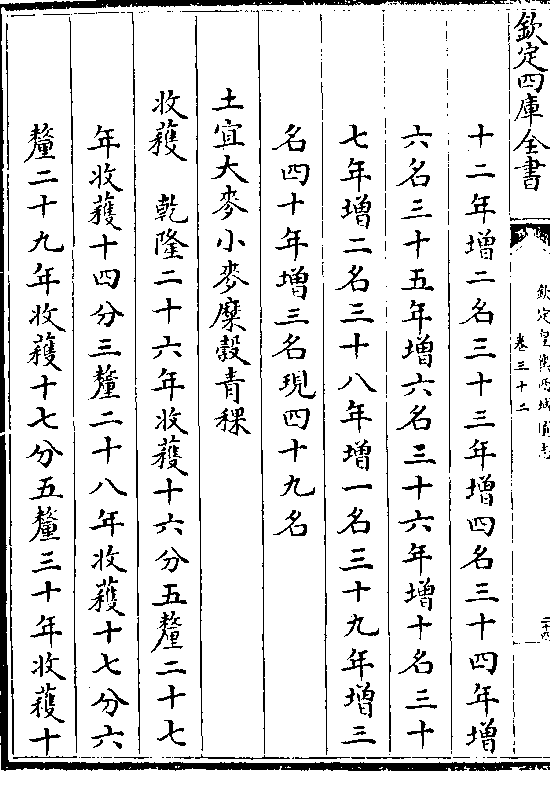 欽定四庫全書
欽定皇輿西域圖志
卷三十二
十二年增二名三十三年增四名三十四年增
六名三十五年增六名三十六年增十名三十
七年增二名三十八年增一名三十九年增三
名四十年增三名現四十九名
土宜大麥小麥糜穀青稞
收穫　乾隆二十六年收穫十六分五釐二十七
年收穫十四分三釐二十八年收穫十七分六
釐二十九年收穫十七分五釐三十年收穫十